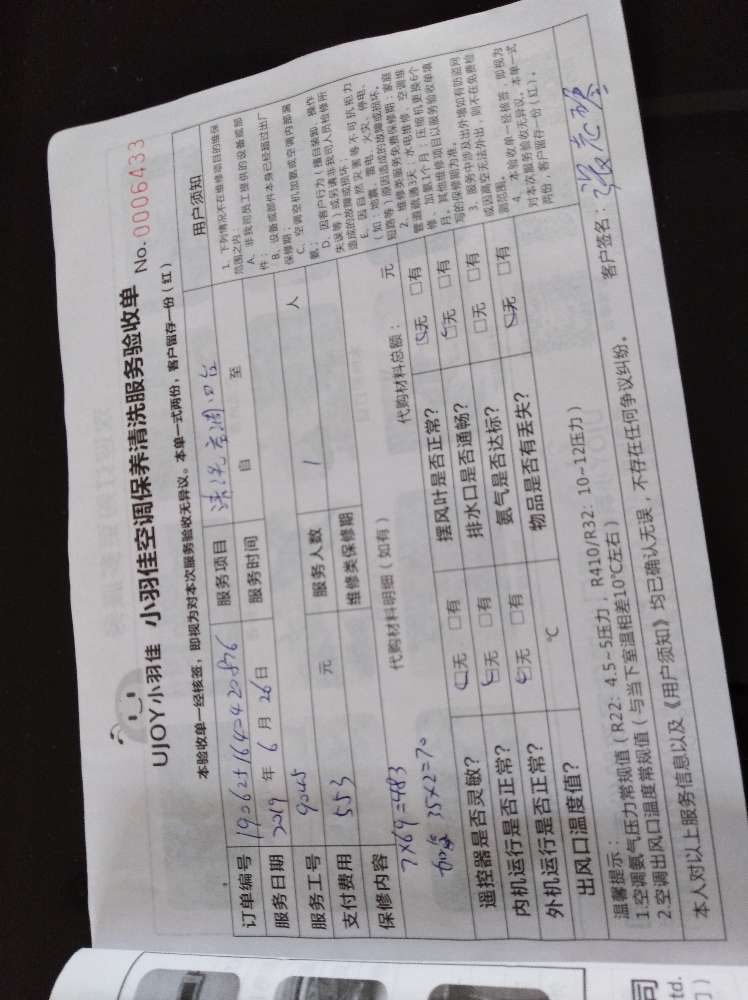 UJOY小羽佳 小羽佳空调保养清洗服务验收单 No.0006433
本验收单一经核签，即视为对本次服务验收无异议。本单一式两份，客户留存一份（红）
订单编号 服务项目 清洗空调四台
服务日期 2019 年 6 月 26 日 服务时间 自 至
服务工号 9045 服务人数 1 人
支付费用 553 元 维修类保修期
保修内容 代购材料明细（如有） 代购材料总额： 元
7×69=483
35×2=70
遥控器是否灵敏？ □无 □有 摆风叶是否正常？ □无 □有
内机运行是否正常？ □无 □有 排水口是否通畅？ □无 □有
外机运行是否正常？ □无 □有 氨气是否达标？ □无 □有
出风口温度值？ ℃ 物品是否有丢失？ □无 □有
用户须知
1、下列情况不在维修项目的维保
范围之内：
A、非我司员工提供的设备或部
件；
B、设备或部件本身已经超过出厂
保修期；
C、空调空机加氨或空调内部漏
氨；
D、因客户行为（擅自装卸、操作
失误等）或另请非我司人员检修所
造成的故障或损坏；
E、因自然灾害等不可抗拒力
（如：地震、雷电、火灾、停电、
短路等）原因造成的故障或损坏。
2、维修类服务免费保修期：家庭
管道疏通3天；水电维修、空调维
修、加氨1个月；压缩机更换6个
月。其他维修项目以服务验收单填
写的保修期为准。
3、服务中涉及出外墙如有防盗网
或因高空无法外出，则不在免费检
测范围。
4、本验收单一经核签，即视为
对本次服务验收无异议。本单一式
两份，客户留存一份（红）。
温馨提示：
1.空调氨气压力常规值（R22：4.5~5压力，R410/R32：10~12压力）
2.空调出风口温度常规值（与当下室温相差10℃左右）
本人对以上服务信息以及《用户须知》均已确认无误，不存在任何争议纠纷。
客户签名：
司
td.